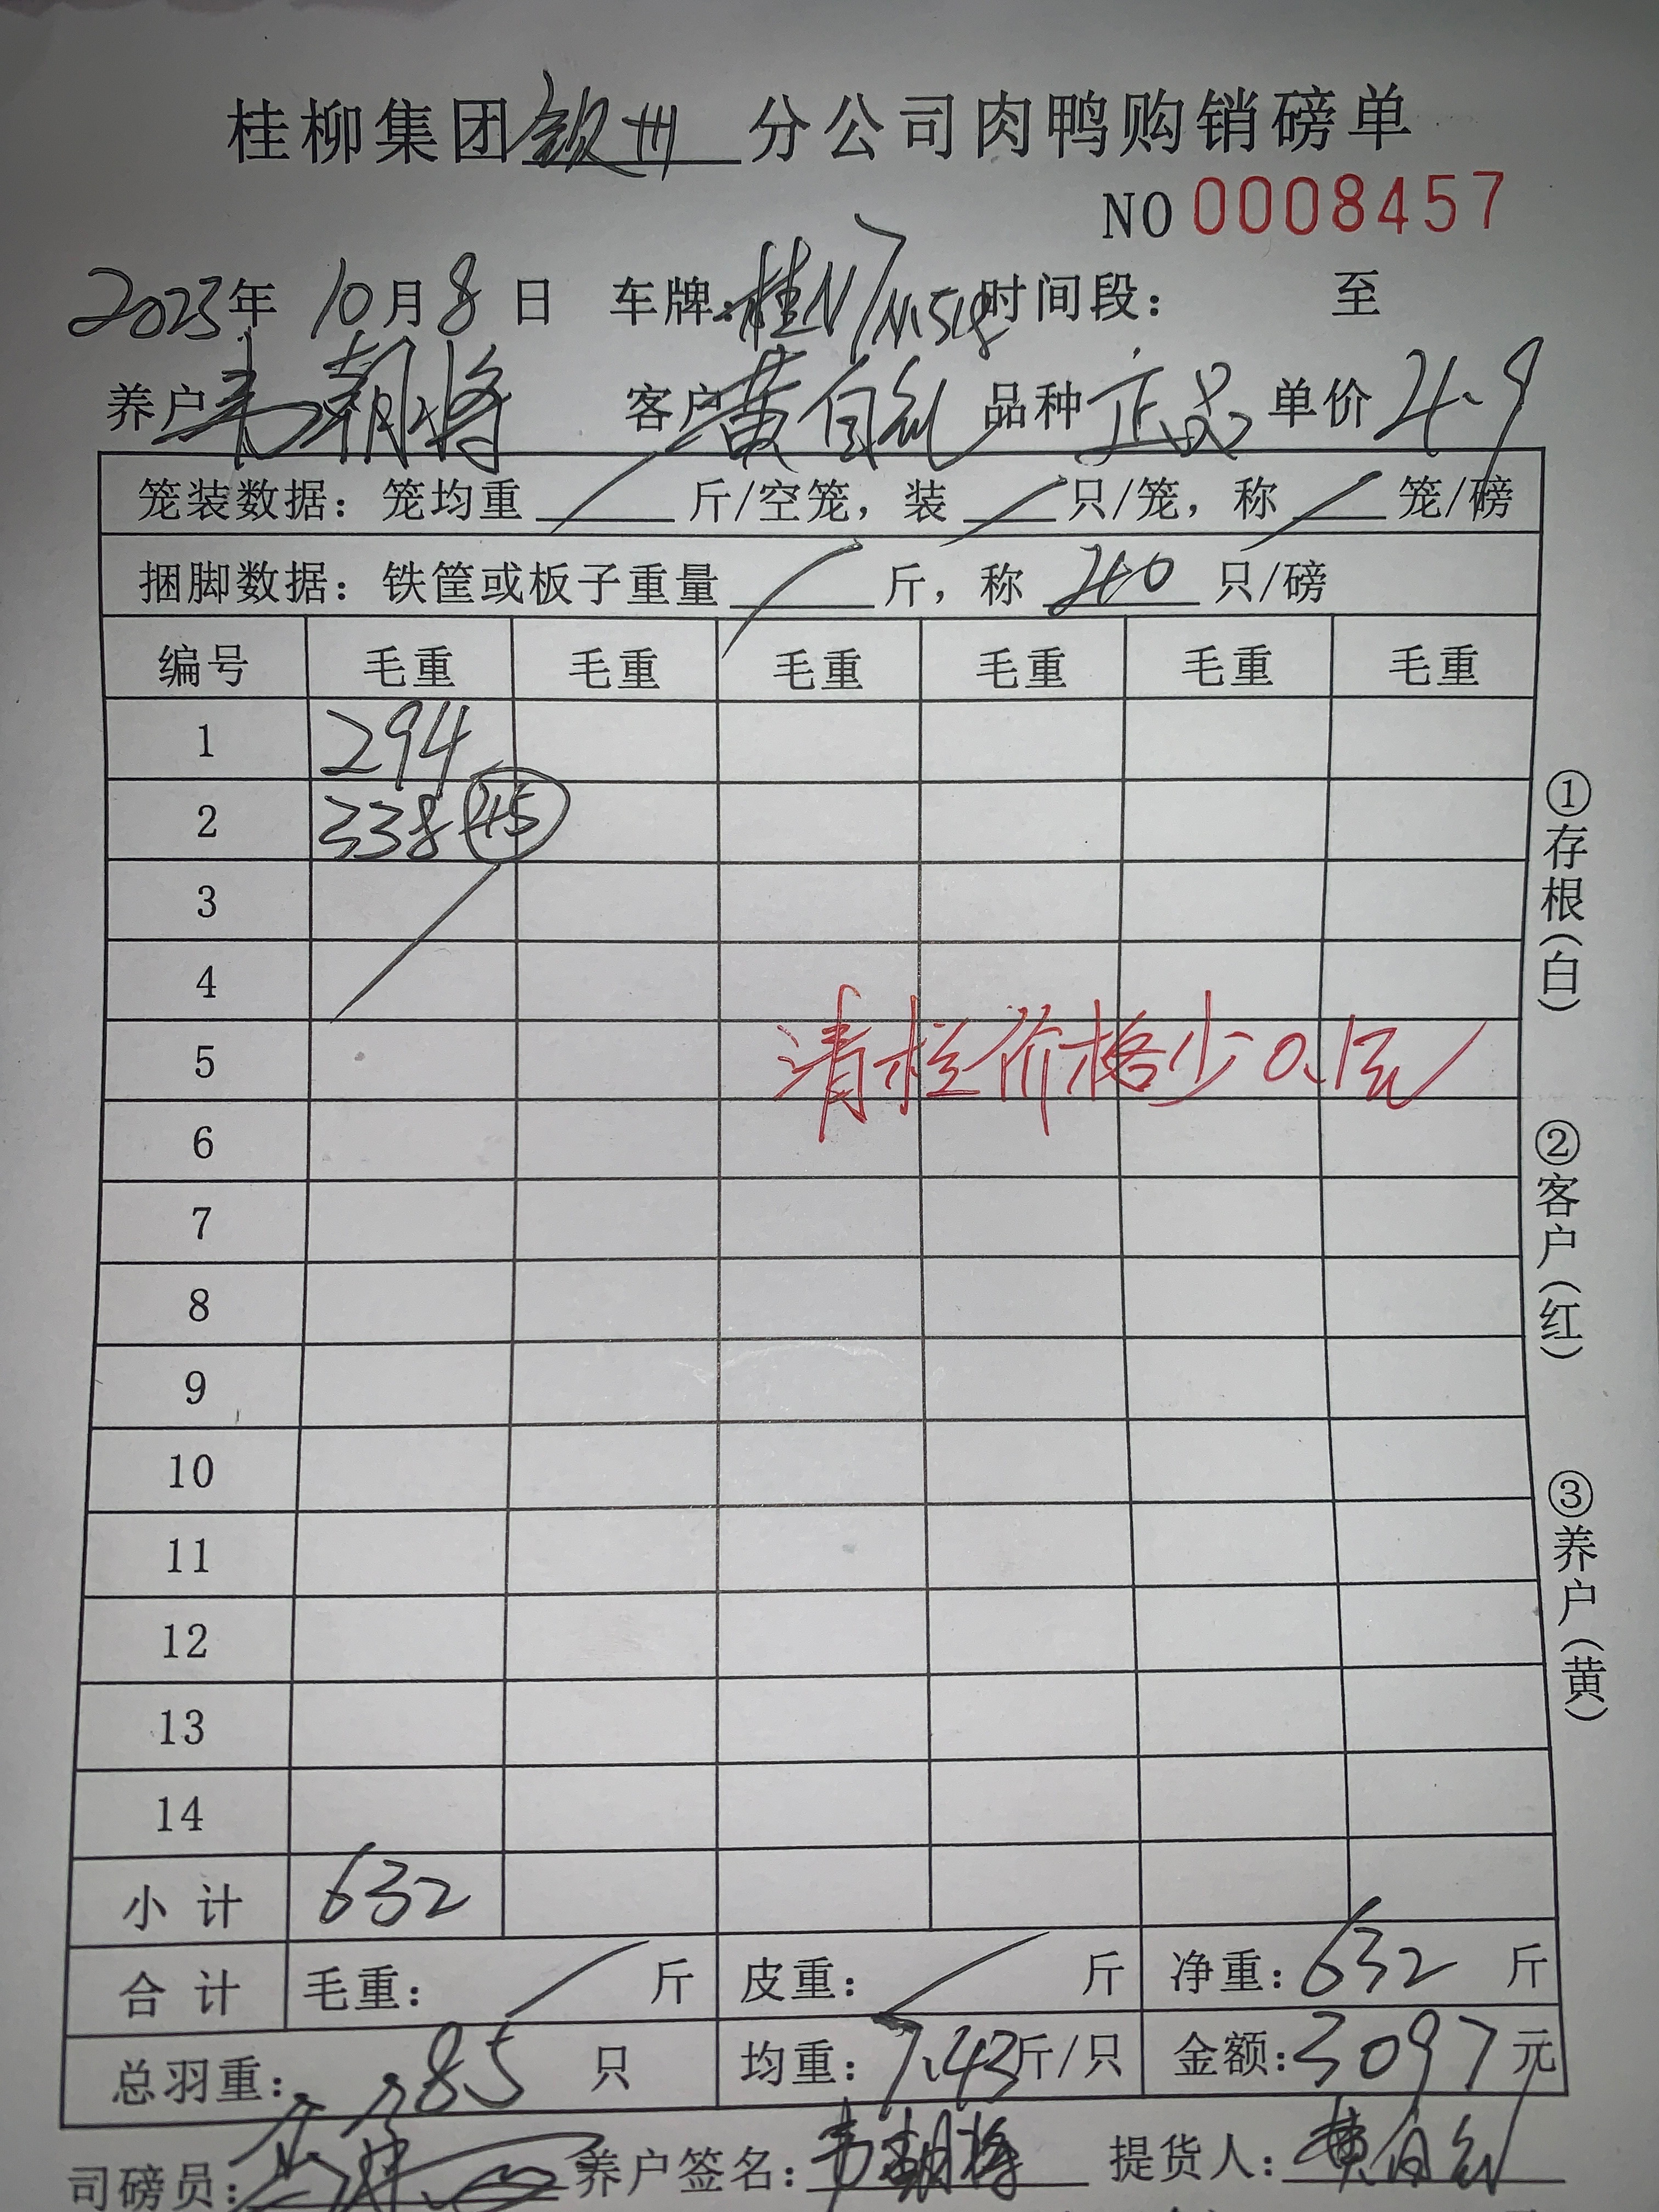 桂柳集团钦州分公司肉鸭购销磅单
NO 0008457
2023年 10月 8日 车牌:桂N 时间段: 至
养户韦朝将 客户黄自 品种正品 单价4.9
笼装数据:笼均重 斤/空笼,装 只/笼,称 笼/磅
捆脚数据:铁筐或板子重量 斤,称 40 只/磅
编号 毛重 毛重 毛重 毛重 毛重 毛重
1 294
2 338 45
3
4
5 清栏价格少0.1元
6
7
8
9
10
11
12
13
14
小计 632
合计 毛重: 斤 皮重: 斤 净重:632 斤
总羽重: 85 只 均重:7.43斤/只 金额:3097元
司磅员: 养户签名:韦朝将 提货人:黄自
①存根(白)
②客户(红)
③养户(黄)